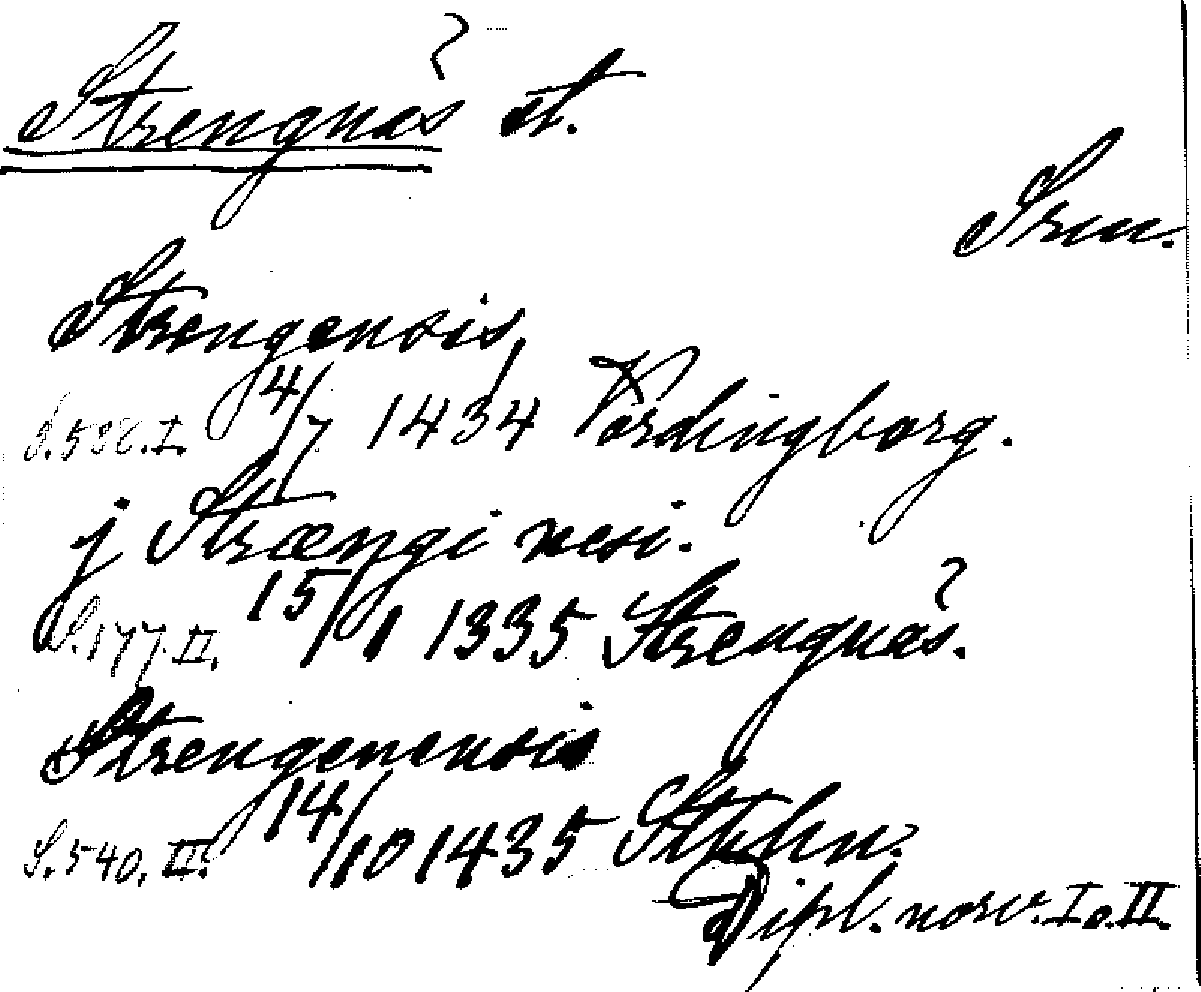 Strengnäs st.
Srm.
Strengensis
S.588.I. 4/7 1434 Vordingborg.
j Strængi nesi.
S.177.II. 15/1 1335 Strengnäs.
Strengenensis
S.540.III. 14/10 1435 Sthlm.
Dipl. norv. I o. II.